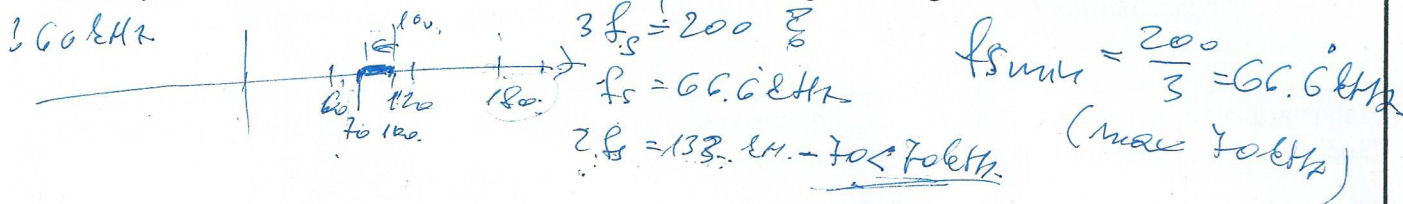 60 kHz
100.
60. 120 180.
70 100.
3 fs = 200
fs = 66.6 kHz
2 fs = 133. kH. - 70 < 70 kHz
fsmin = 200/3 = 66.6 kHz
(max 70 kHz)